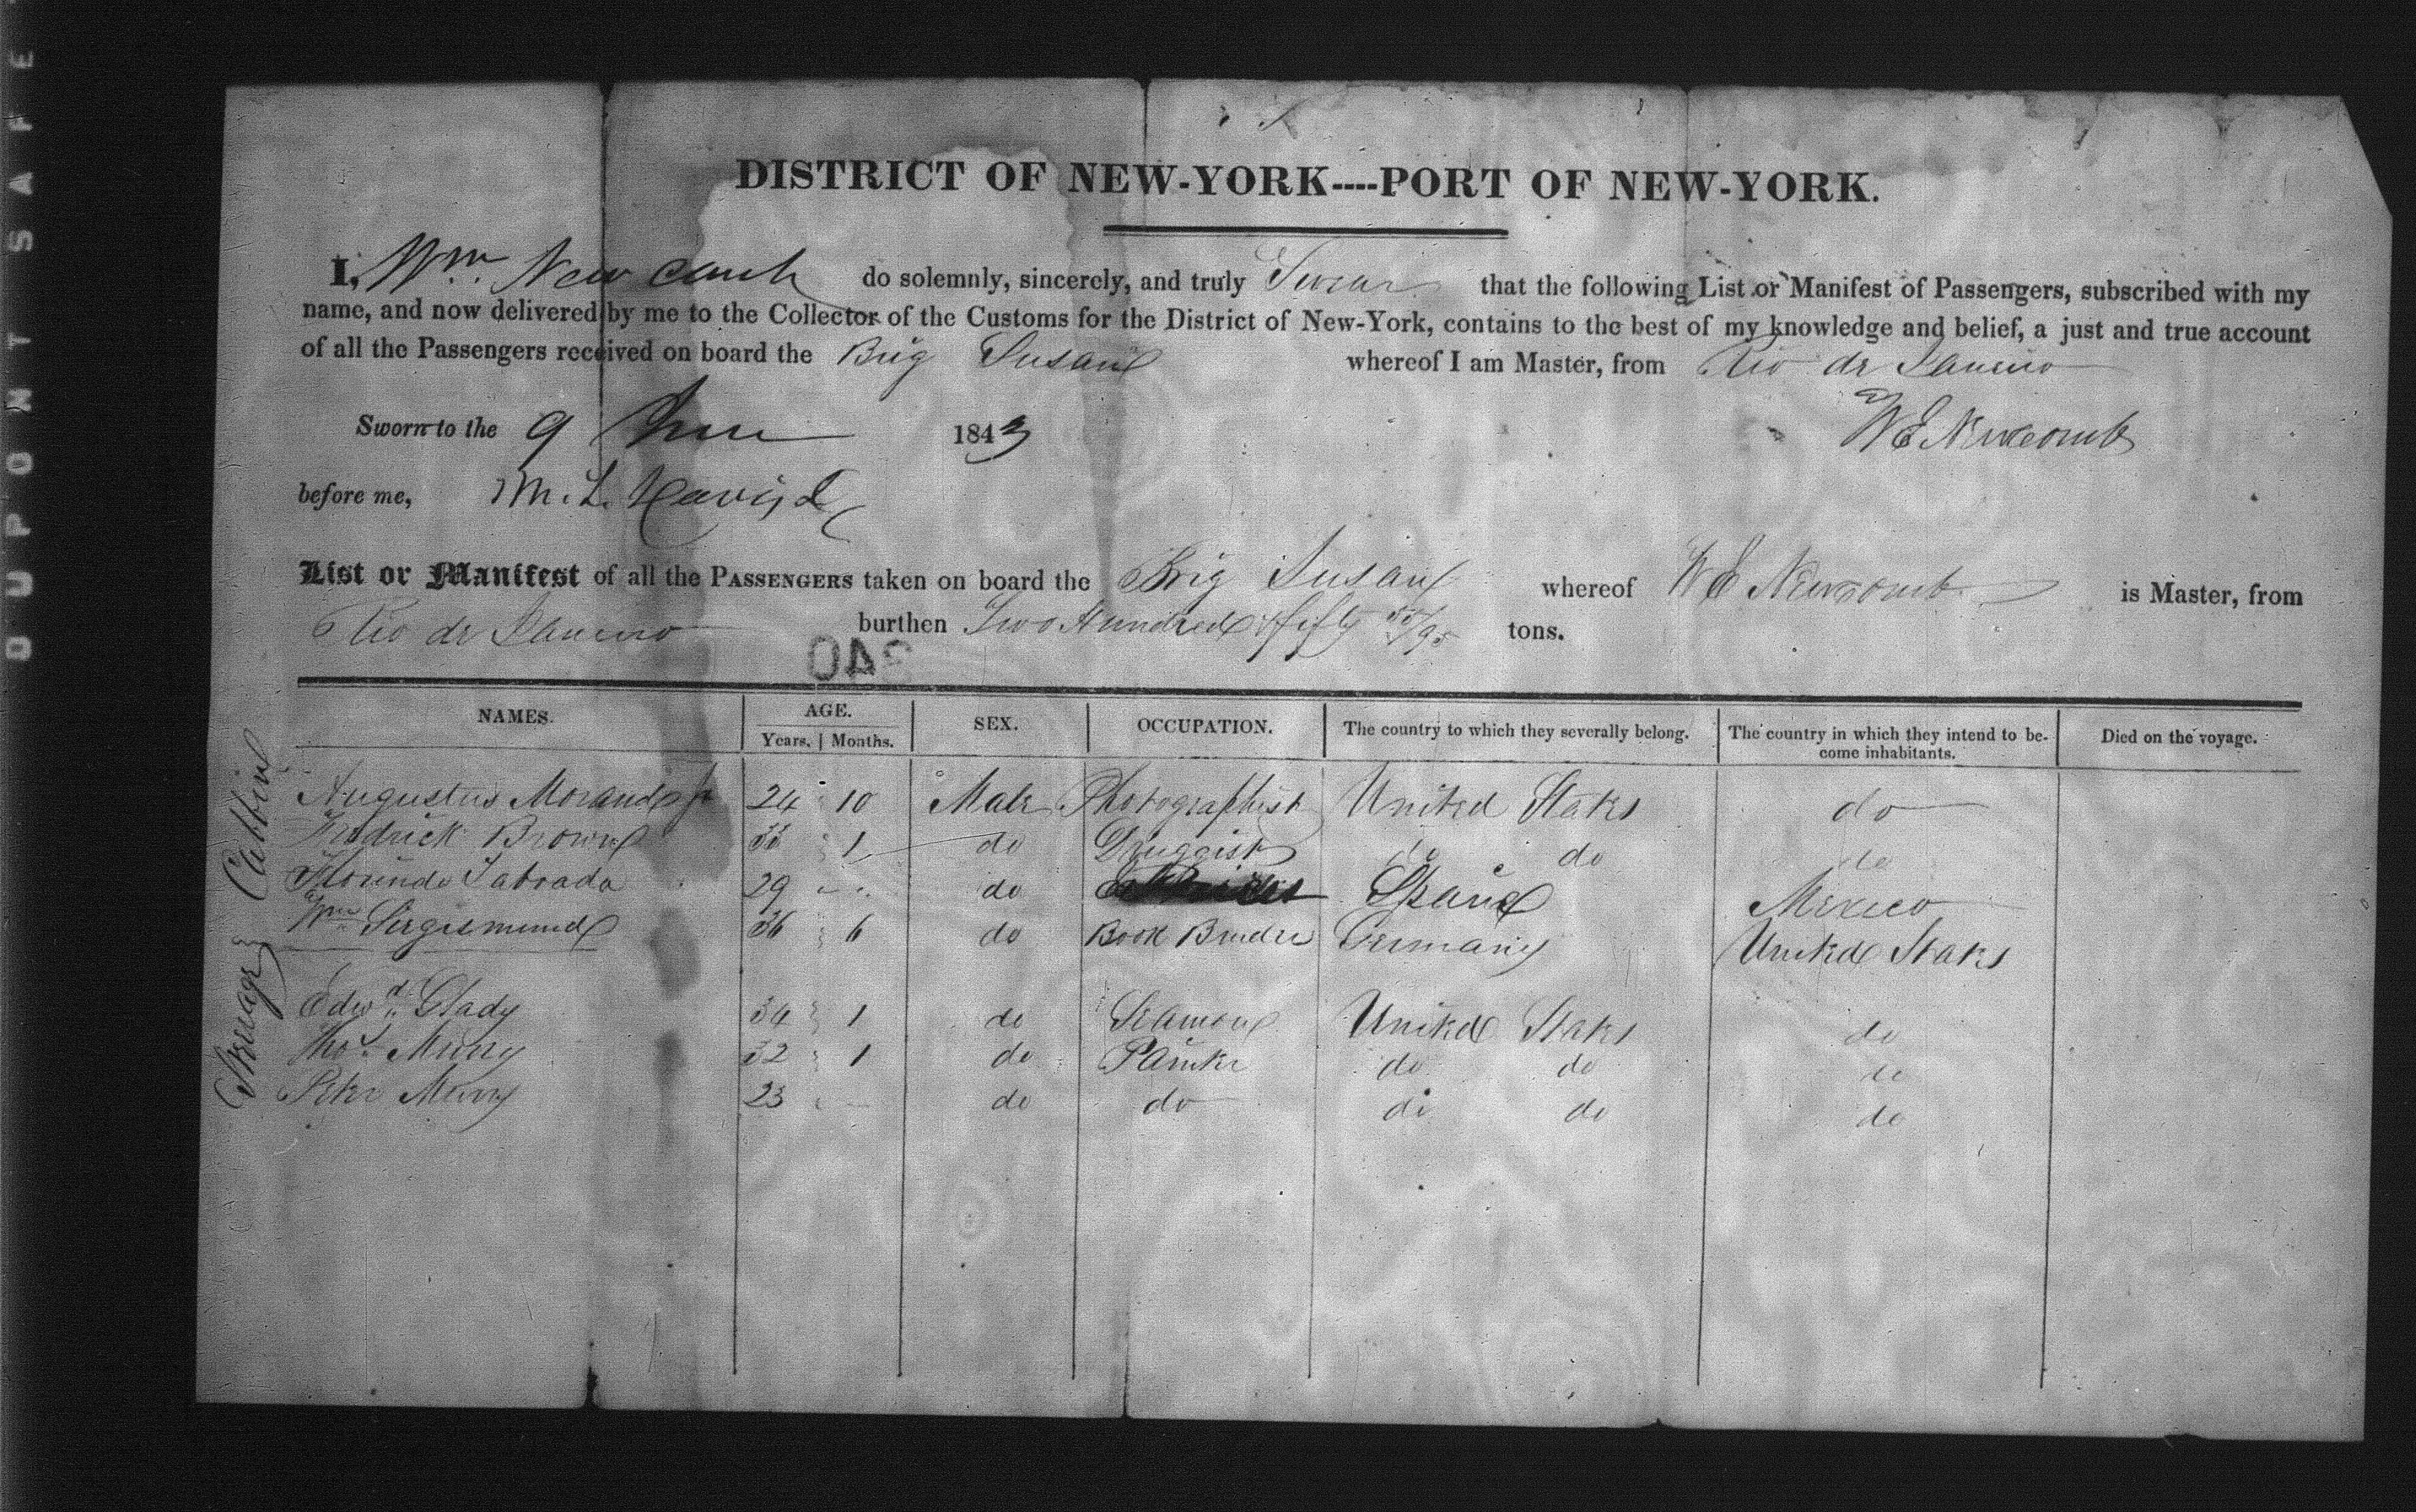 DUPONT SAFE
DISTRICT OF NEW-YORK----PORT OF NEW-YORK.
I, Wm. Newcomb do solemnly, sincerely, and truly Swear that the following List or Manifest of Passengers, subscribed with my
name, and now delivered by me to the Collector of the Customs for the District of New-York, contains to the best of my knowledge and belief, a just and true account
of all the Passengers received on board the Brig Susan whereof I am Master, from Rio de Janeiro
W E Newcomb
Sworn to the 9 June 1843
before me, M. L.
List or Manifest of all the PASSENGERS taken on board the Brig Susan whereof W E Newcomb is Master, from
Rio de Janeiro burthen Two Hundred & fifty /95 tons.
340
NAMES. AGE. SEX. OCCUPATION. The country to which they severally belong. The country in which they intend to be- Died on the voyage.
Years. Months. come inhabitants.
Cabbin
Augustus Morand Jr 24 10 Male Photographist United States do
Fredrick Brown 33 1 do Druggist do do do
Labrada 29 do Spain Mexico
Wm Sirgismund 36 6 do Book Binder Germany United States
Steerage
Edwd. Glady 34 1 do Seaman United States do
Thos. Murry 32 1 do Painter do do do
Peter Murry 23 do do do do do